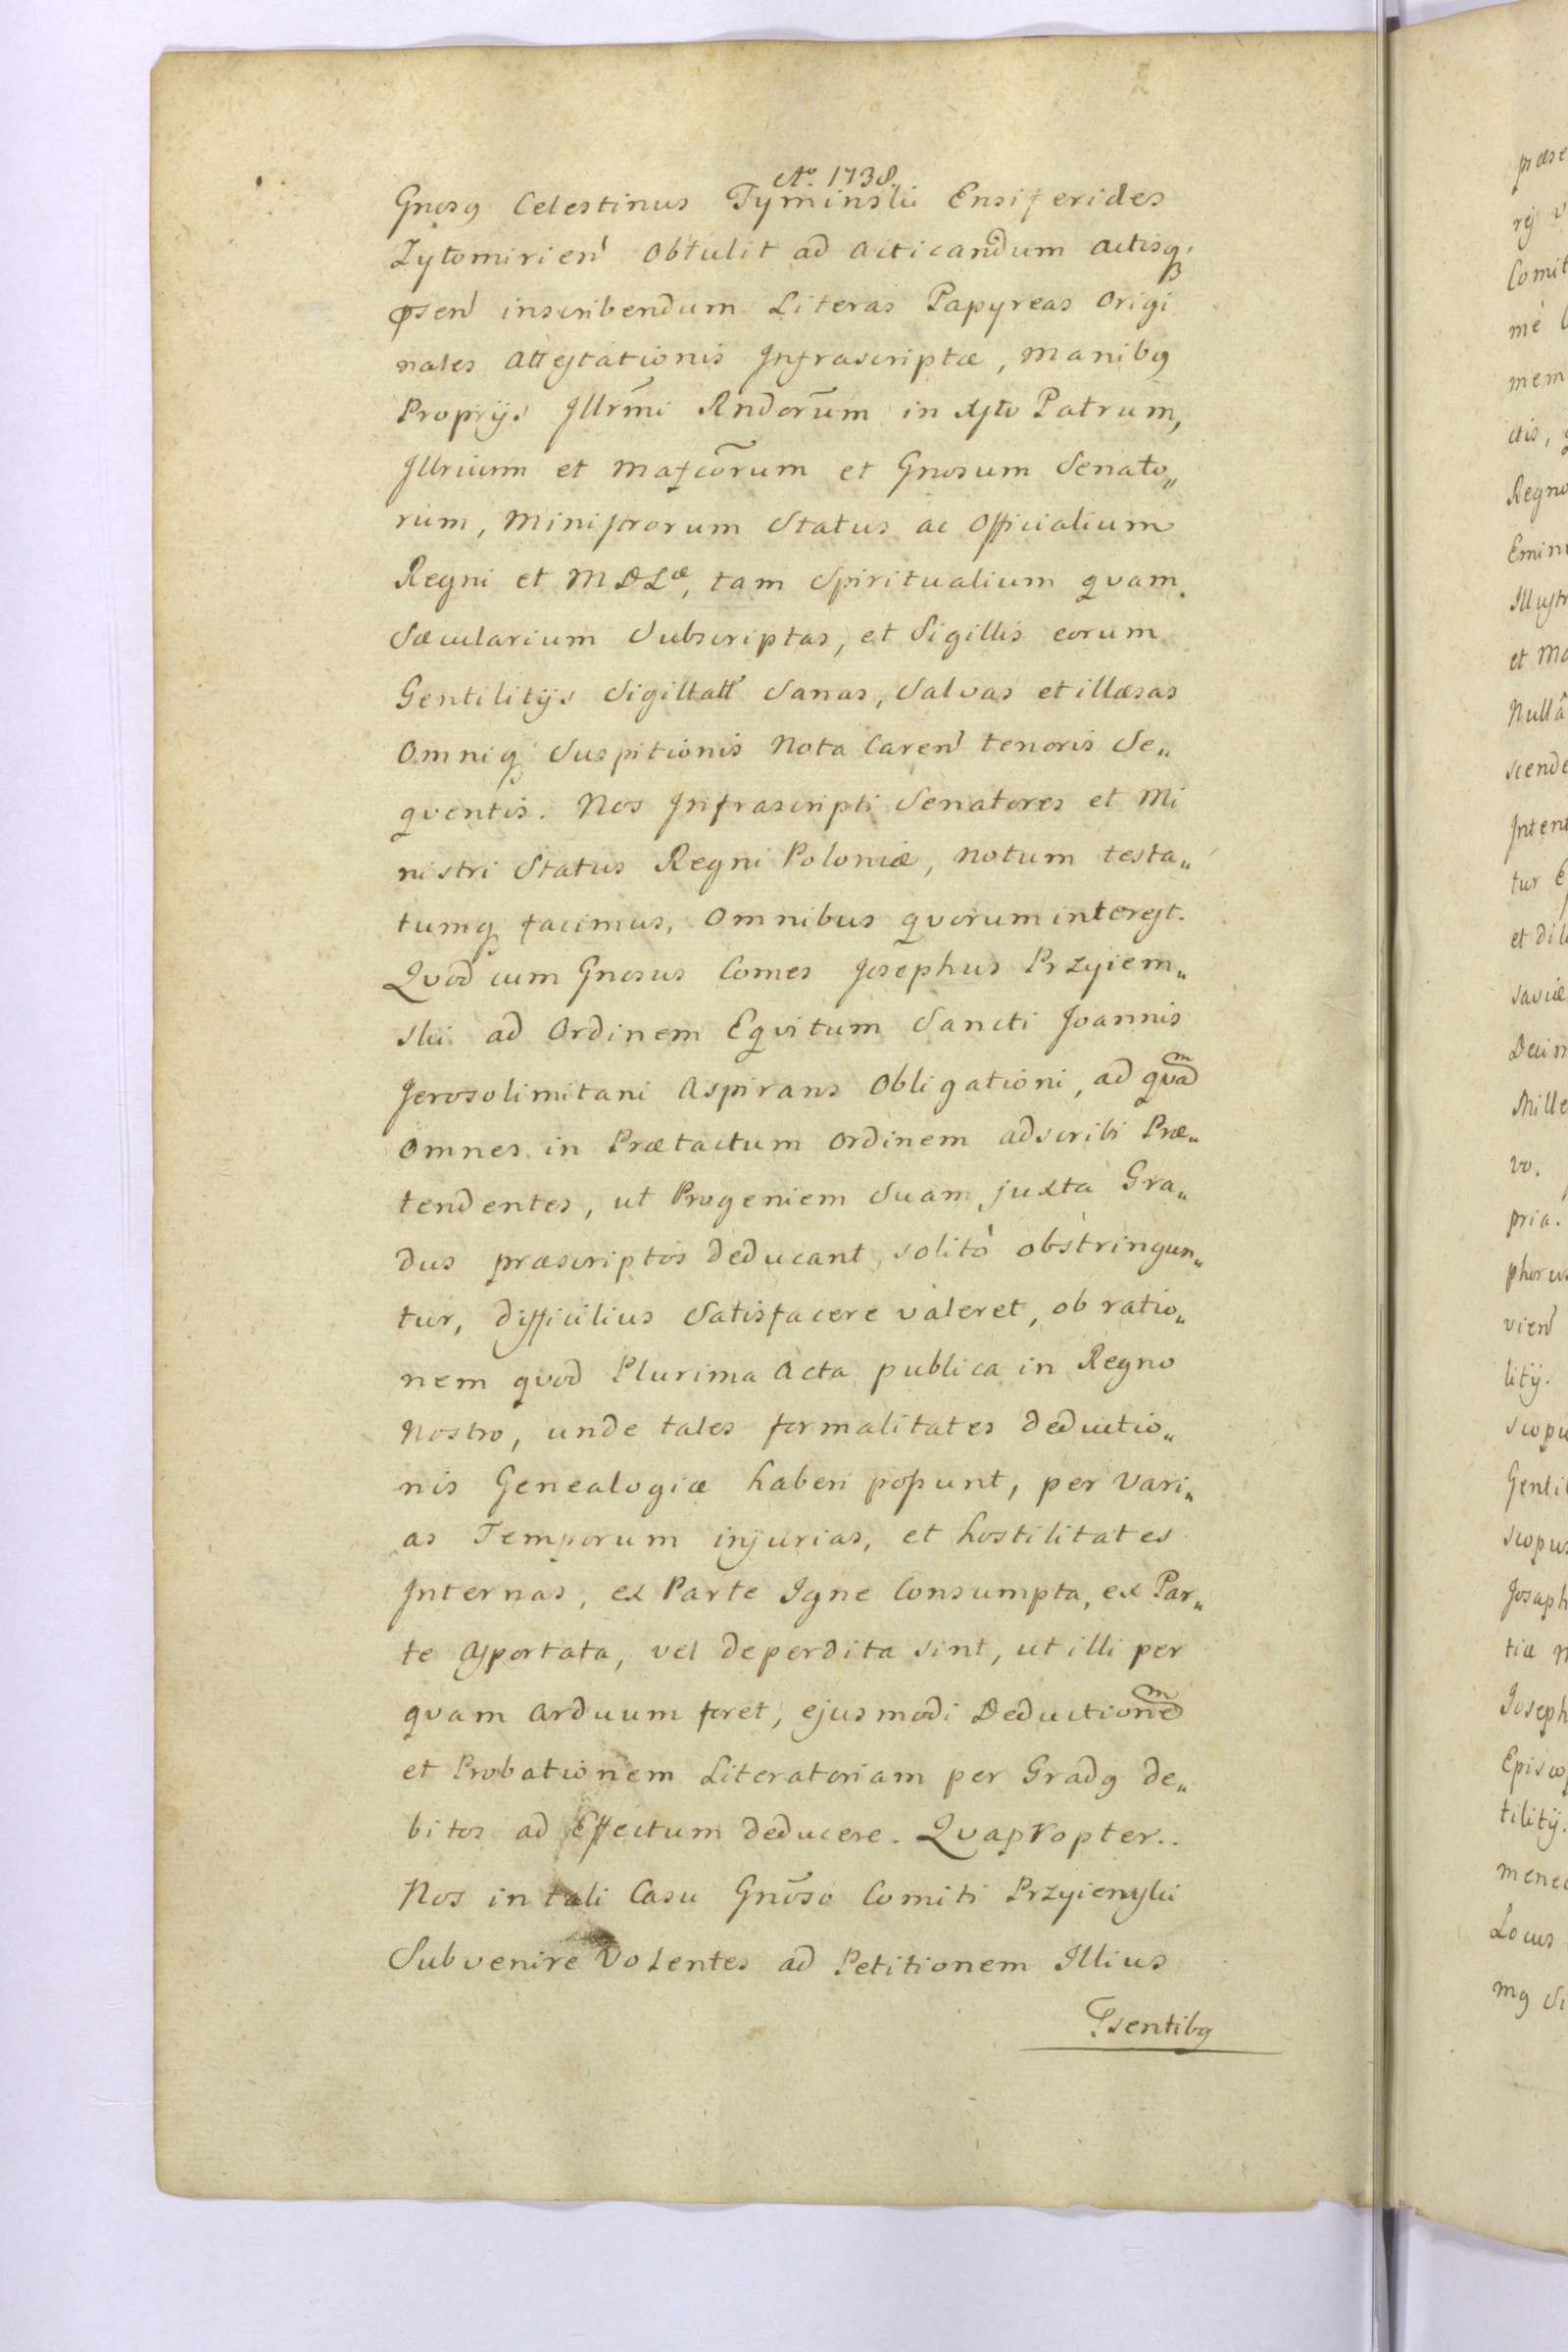 Aō. 1738.
Gnosq Celestinus Tyminski Ensiferides
Zytomirien̄ Obtulit ad Acticandum actisq́;
p̄sen̄ inscribendum Literas Papyreas Origi
nales Attestationis Infrascriptæ, manibq
Proprijs Illrm̄i Rndorūm in Xsto Patrum,
Illrium et Magcōrum et Gnosum Senato„
rum, Ministrorum Status ac Officialium
Regni et M D Læ, tam Spiritualium quam
Sæcularium Subscriptas, et Sigillis eorum
Gentilitijs Sigillatt̄ Sanas, Salvas et illæsas
Omniq́; Suspitionis Nota Caren̄ tenoris Se„
quentis. Nos Infrascripti Senatores et Mi
nistri Status Regni Poloniæ, notum testa„
tumq; facimus, Omnibus quorum interest.
Quod cum Gnosus Comes Josephus Przyiem„
ski ad Ordinem Equitum Sancti Joannis
Jerosolimitani Aspirans Obligationi, ad quam
Omnes in Prætactum Ordinem adscribi Præ„
tendentes, ut Progeniem Suam juxta Gra„
dus præscriptos deducant, solitò obstringun„
tur, difficilius Satisfacere valeret, ob ratio„
nem quod Plurima Acta publica in Regno
Nostro, unde tales formalitates deductio„
nis Genealogiæ haberi possunt, per Vari„
as Temporum injurias, et hostilitates
Internas, ex Parte Igne Consumpta, ex Par„
te Asportata, vel deperdita sint, ut illi per
quam Arduum foret, ejusmodi Deductionem
et Probationem Literatoriam per Gradq de„
bitos ad Effectum deducere. Quapropter..
Nos in tali Casu Gnōso Comiti Przyiemski
Subvenire Volentes ad Petitionem Illius
P̄sentibq